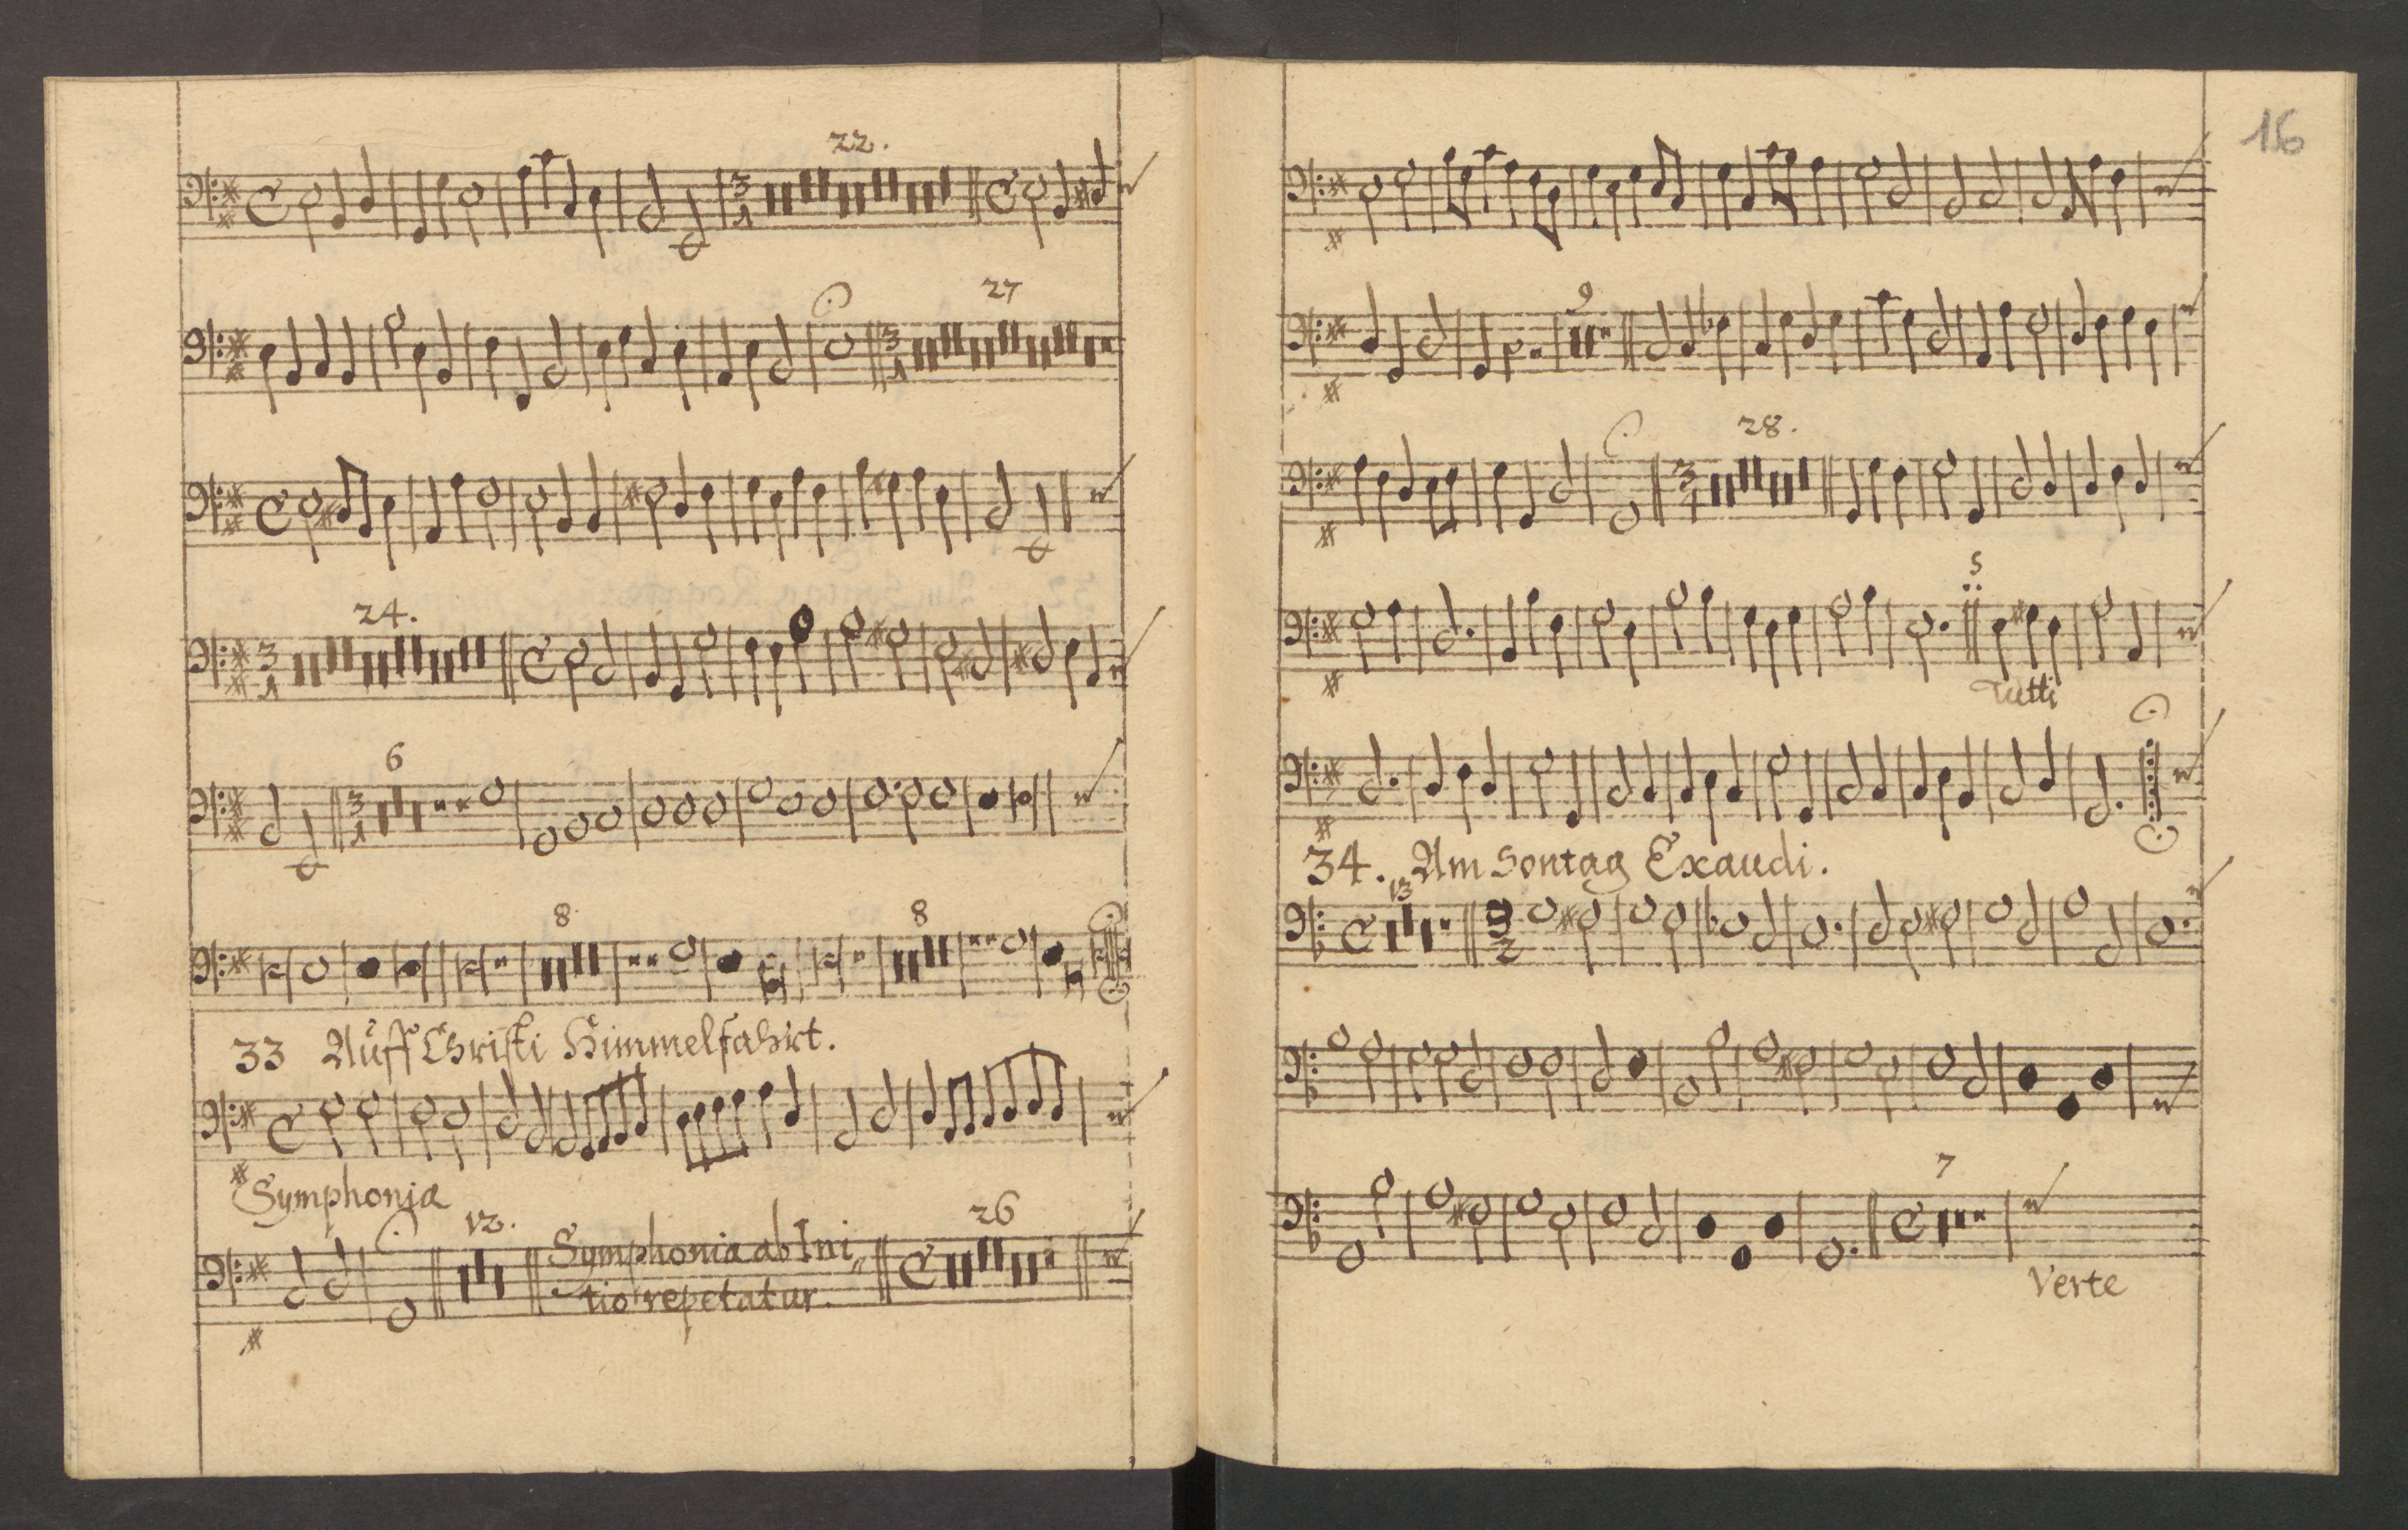 22.
27
24.
6
8
8
33 Auff Christi Himmelfahrt.
Symphonia
12.
Symphonia ab Ini„
tio repetatur.
26
16
9
28.
5
Tutti
34. Am Sontag Exaudi.
13
7
Verte